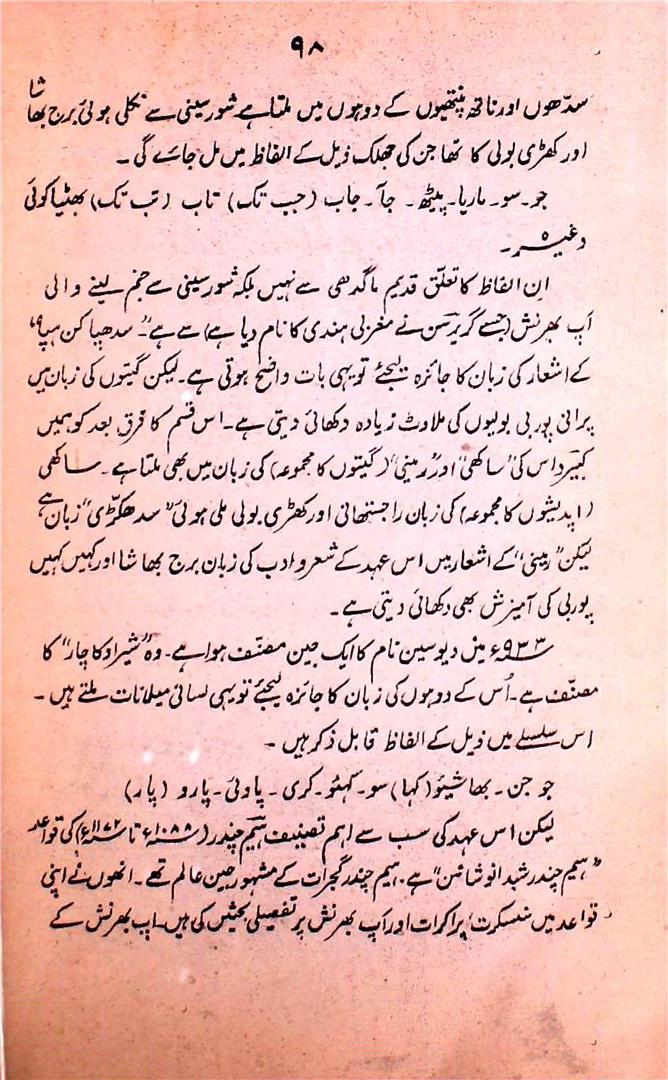 ۹۸
سدّھوں اور ناتھ پنتھیوں کے دوہوں میں ملتا ہے شورسینی سے نکلی ہوئی برج بھاشا
اور کھڑی بولی کا تھا جن کی جھلک ذیل کے الفاظ میں مل جائے گی ۔
جو۔سو۔ماریا۔پیٹھ۔ جآ۔جاب (جب تک) تاب (تب تک) بھنیا کوئی
وغیرہ ۔
ان الفاظ کا تعلّق قدیم ماگدھی سے نہیں بلکہ شورسینی سے جنم لینے والی
اَپ بھرنش (جسے گریرسن نے مغربی ہندی کا نام دیا ہے) سے ہے۔ سدھیا کن ہپا،
کے اشعار کی زبان کا جائزہ لیجئے تو یہی بات واضح ہوتی ہے۔لیکن گیتوں کی زبان میں
پرانی پوربی بولیوں کی ملاوٹ زیادہ دکھائی دیتی ہے۔اس قسم کا فرق بعد کو ہمیں
کبیر داس کی "ساکھی" اور "رمینی" (گیتوں کا مجموعہ) کی زبان میں بھی ملتا ہے۔ساکھی
(اپدیشوں کا مجموعہ) کی زبان راجستھانی اور کھڑی بولی ملی ہوئی "سدھکڑی" زبان ہے،
لیکن "رمینی" کے اشعار میں اس عہد کے شعر و ادب کی زبان برج بھاشا اور کہیں کہیں
پوربی کی آمیزش بھی دکھائی دیتی ہے۔
۹۳۳ء میں دیوسین نام کا ایک جین مصنّف ہوا ہے۔وہ "شیراوکاچار" کا
مصنّف ہے۔اُس کے دوہوں کی زبان کا جائزہ لیجئے تو یہی لسانی میلانات ملتے ہیں ۔
اس سلسلے میں ذیل کے الفاظ قابل ذکر ہیں ۔
جو جن۔بھاشیئو (کہا) سو۔کہئو۔کری۔پاوئی۔پارو (پار)
لیکن اس عہد کی سب سے اہم تصنیف ہیم چندر (۱۰۸۸ء تا ۱۱۷۲ء) کی قواعد
"ہیم چندر شبد انوشاسن" ہے۔ہیم چندر گجرات کے مشہور جین عالم تھے۔انھوں نے اپنی
قواعد میں سنسکرت، پراکرات اور اَپ بھرنش پر تفصیلی بحثیں کی ہیں۔اپ بھرنش کے